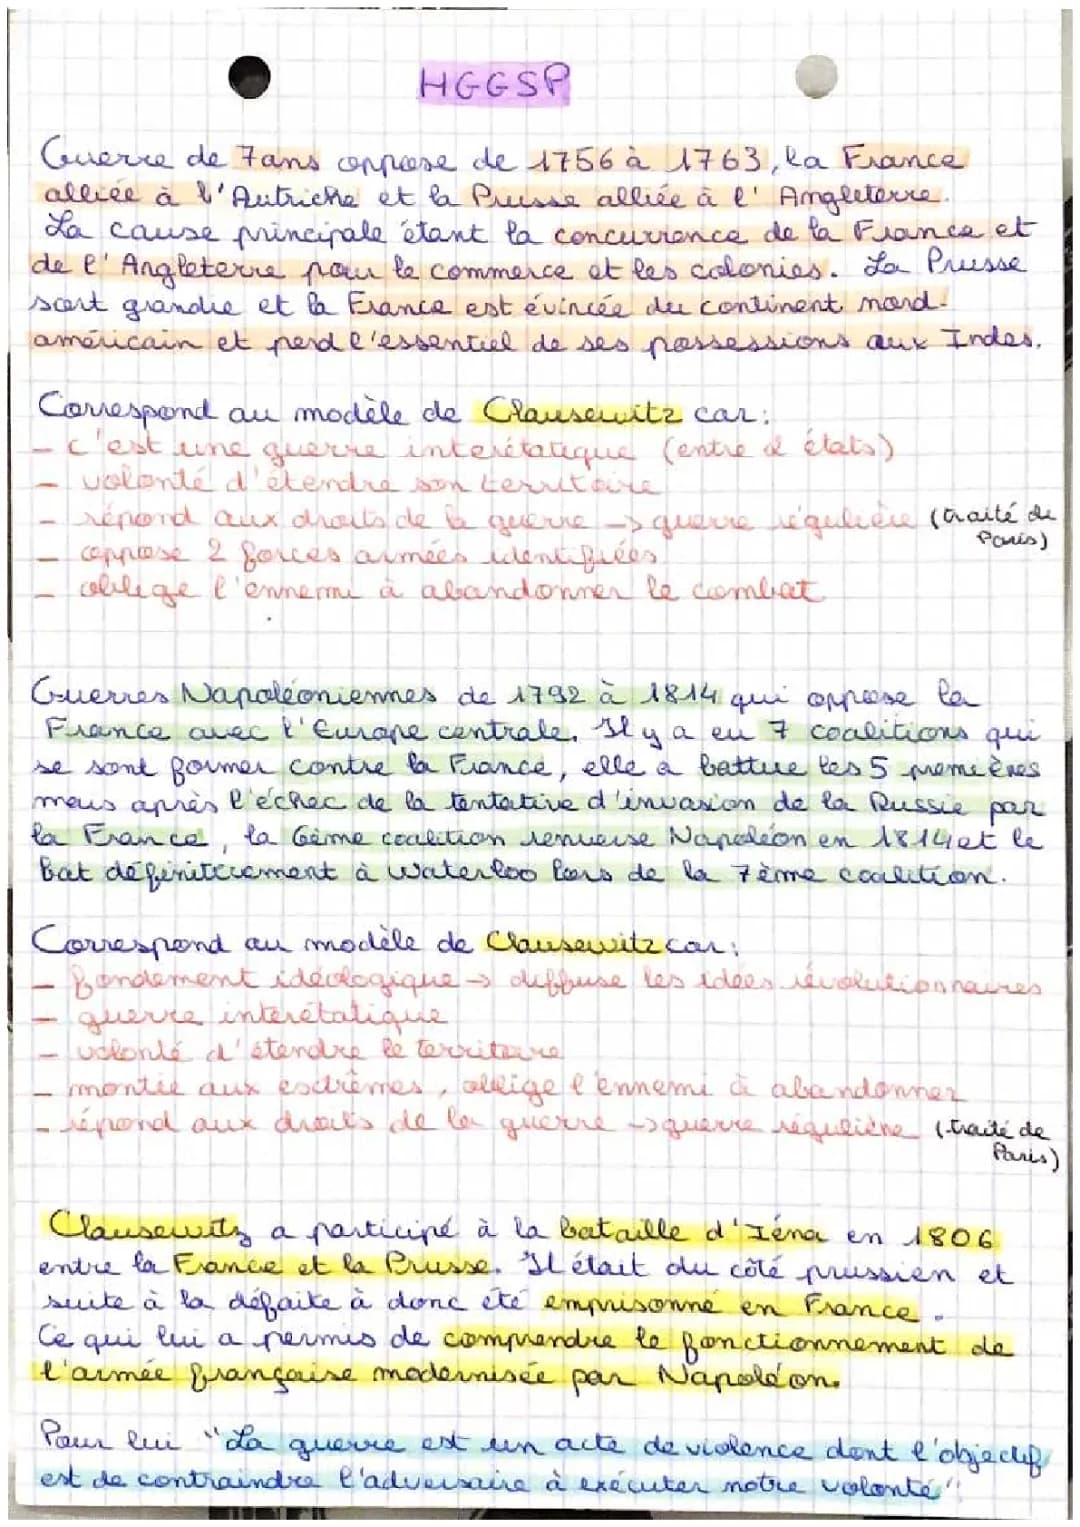 HGGSP
Guerre de 7ans oppose de 1756 à 1763, la France
alliée à l'Autriche et la Prusse alliée à l' Angleterre.
La cause principale étant la concurrence de la France et
de l' Angleterre pour le commerce et les colonies. La Prusse
sort grandie et la France est évincée du continent nord-
américain et perd l'essentiel de ses possessions aux Indes.
Correspond au modèle de Clausewitz car:
- c'est une guerre interétatique (entre 2 états)
- volonté d'étendre son territoire
- répond aux droits de la guerre -> guerre régulière (traité de
Paris)
- oppose 2 forces armées identifiées
- oblige l'ennemi à abandonner le combat
Guerres Napoléoniennes de 1792 à 1814 qui oppose la
France avec l'Europe centrale. Il y a eu 7 coalitions qui
se sont former contre la France, elle a battue les 5 premières
mais après l'échec de la tentative d'invasion de la Russie par
la France, la 6ème coalition renverse Napoléon en 1814 et le
bat définitivement à Waterloo lors de la 7ème coalition.
Correspond au modèle de Clausewitz car:
- fondement idéologique -> diffuse les idées révolutionnaires
- guerre interétatique
- volonté d'étendre le territoire
- montée aux extrêmes, oblige l'ennemi à abandonner
- répond aux droits de la guerre -> guerre régulière (traité de
Paris)
Clausewitz a participé à la bataille d'Iéna en 1806
entre la France et la Prusse. Il était du côté prussien et
suite à la défaite à donc été emprisonné en France.
Ce qui lui a permis de comprendre le fonctionnement de
l'armée française modernisée par Napoléon.
Pour lui "La guerre est un acte de violence dont l'objectif
est de contraindre l'adversaire à exécuter notre volonté".